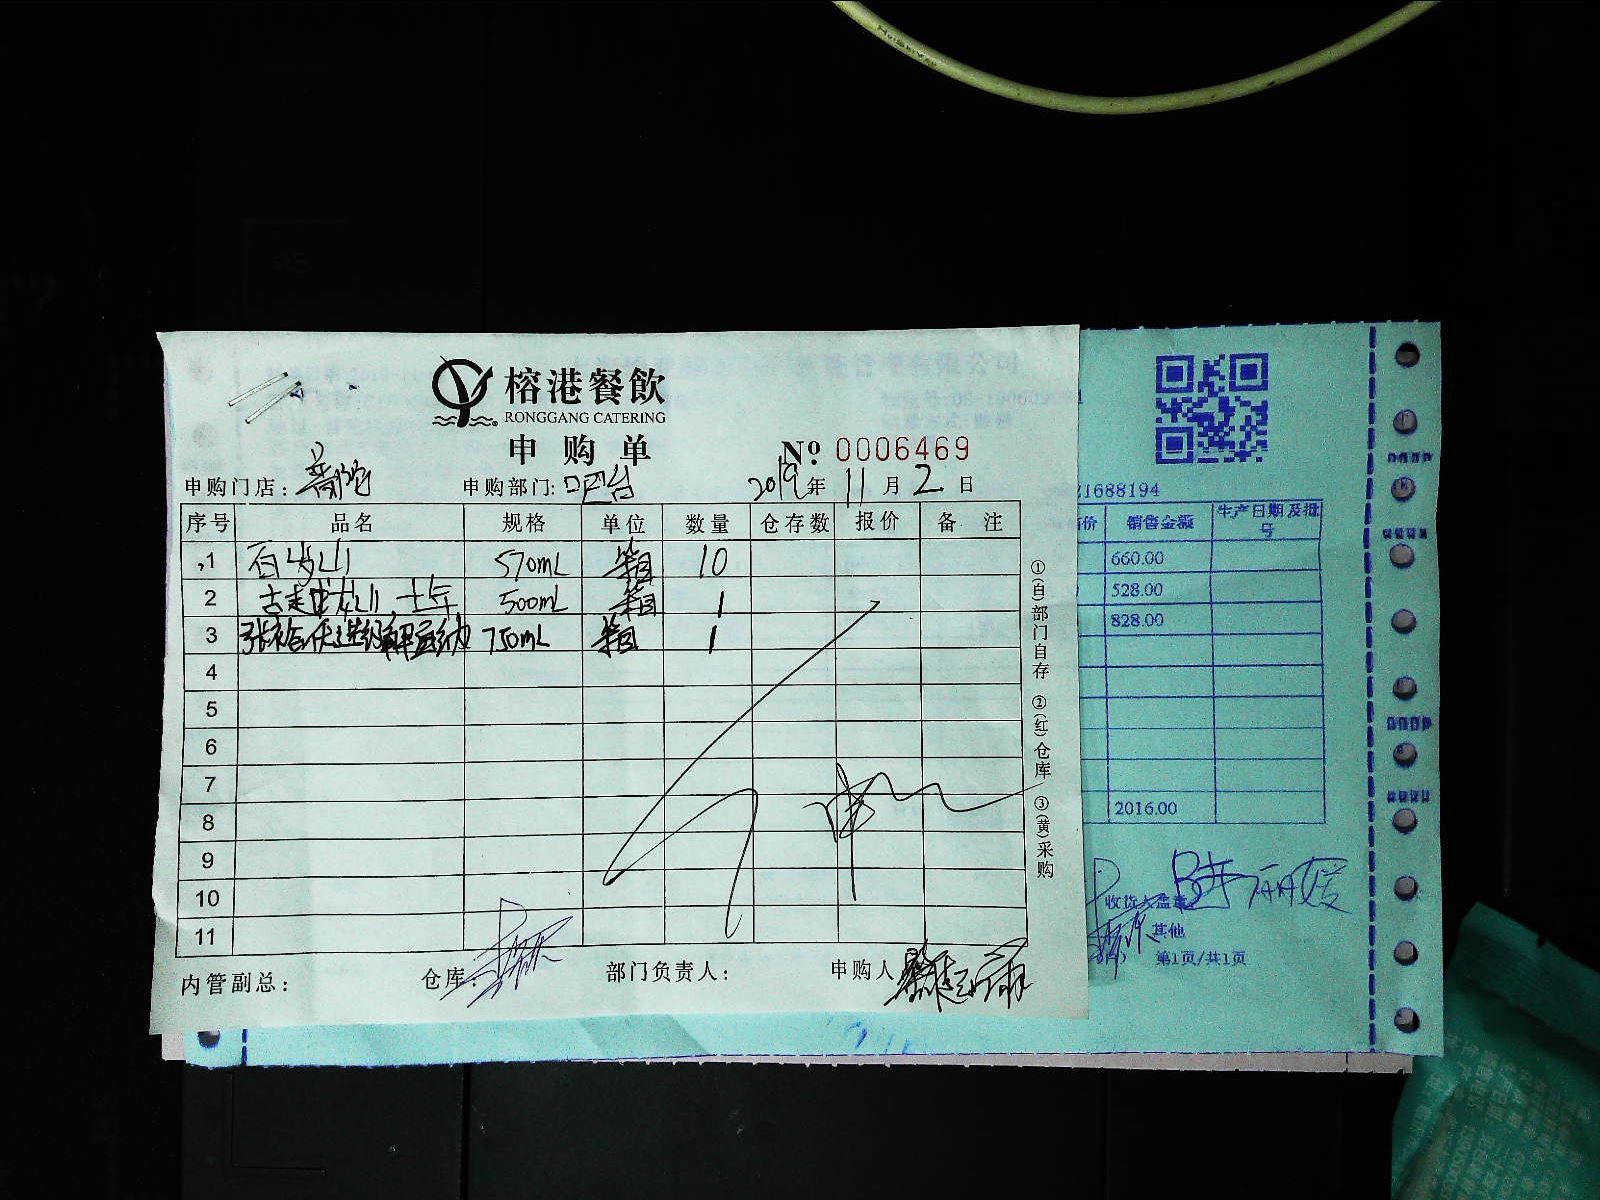 榕港餐飲
RONGGANG CATERING
申购单
Nº 0006469
申购门店: 普陀 申购部门: 吧台 2019年11月2日
序号 品名 规格 单位 数量 仓存数 报价 备注
1 百岁山 570mL 箱 10
2 古越龙山 十年 500mL 箱 1
3 张裕 750mL 箱 1
4
5
6
7
8
9
10
11
内管副总: 仓库: 部门负责人: 申购人
①(白)部门自存 ②(红)仓库 ③(黄)采购
21688194
价 销售金额 生产日期及批号
660.00
528.00
828.00
2016.00
收货人盖章
其他
第1页/共1页